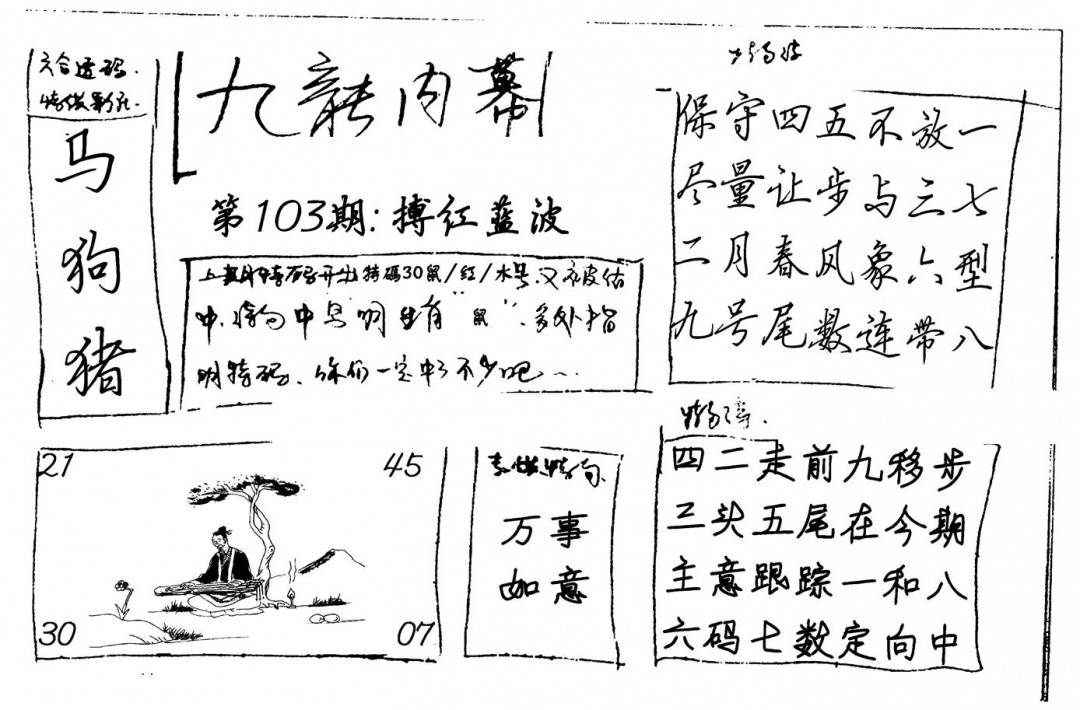 六合透码.
马
狗
猪
九龍内幕
第103期: 搏红蓝波
上期特码开出特碼30鼠/红/水号.又被估
中.特句中号明生肖"鼠".多处指
明特码、你们一定中了不少吧...
保守四五不放一
尽量让步与三七
二月春风象六型
九号尾数连带八
21
45
30
07
万事
如意
四二走前九移步
三头五尾在今期
主意跟踪一和八
六码七数定向中